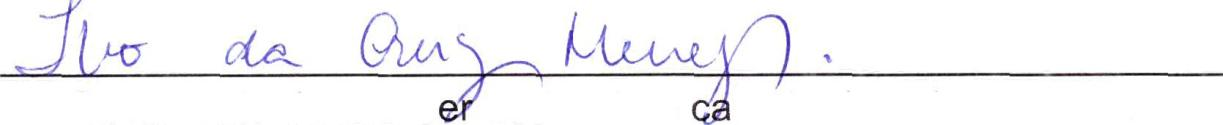 Ivo da Cruz Menezes.
er ca